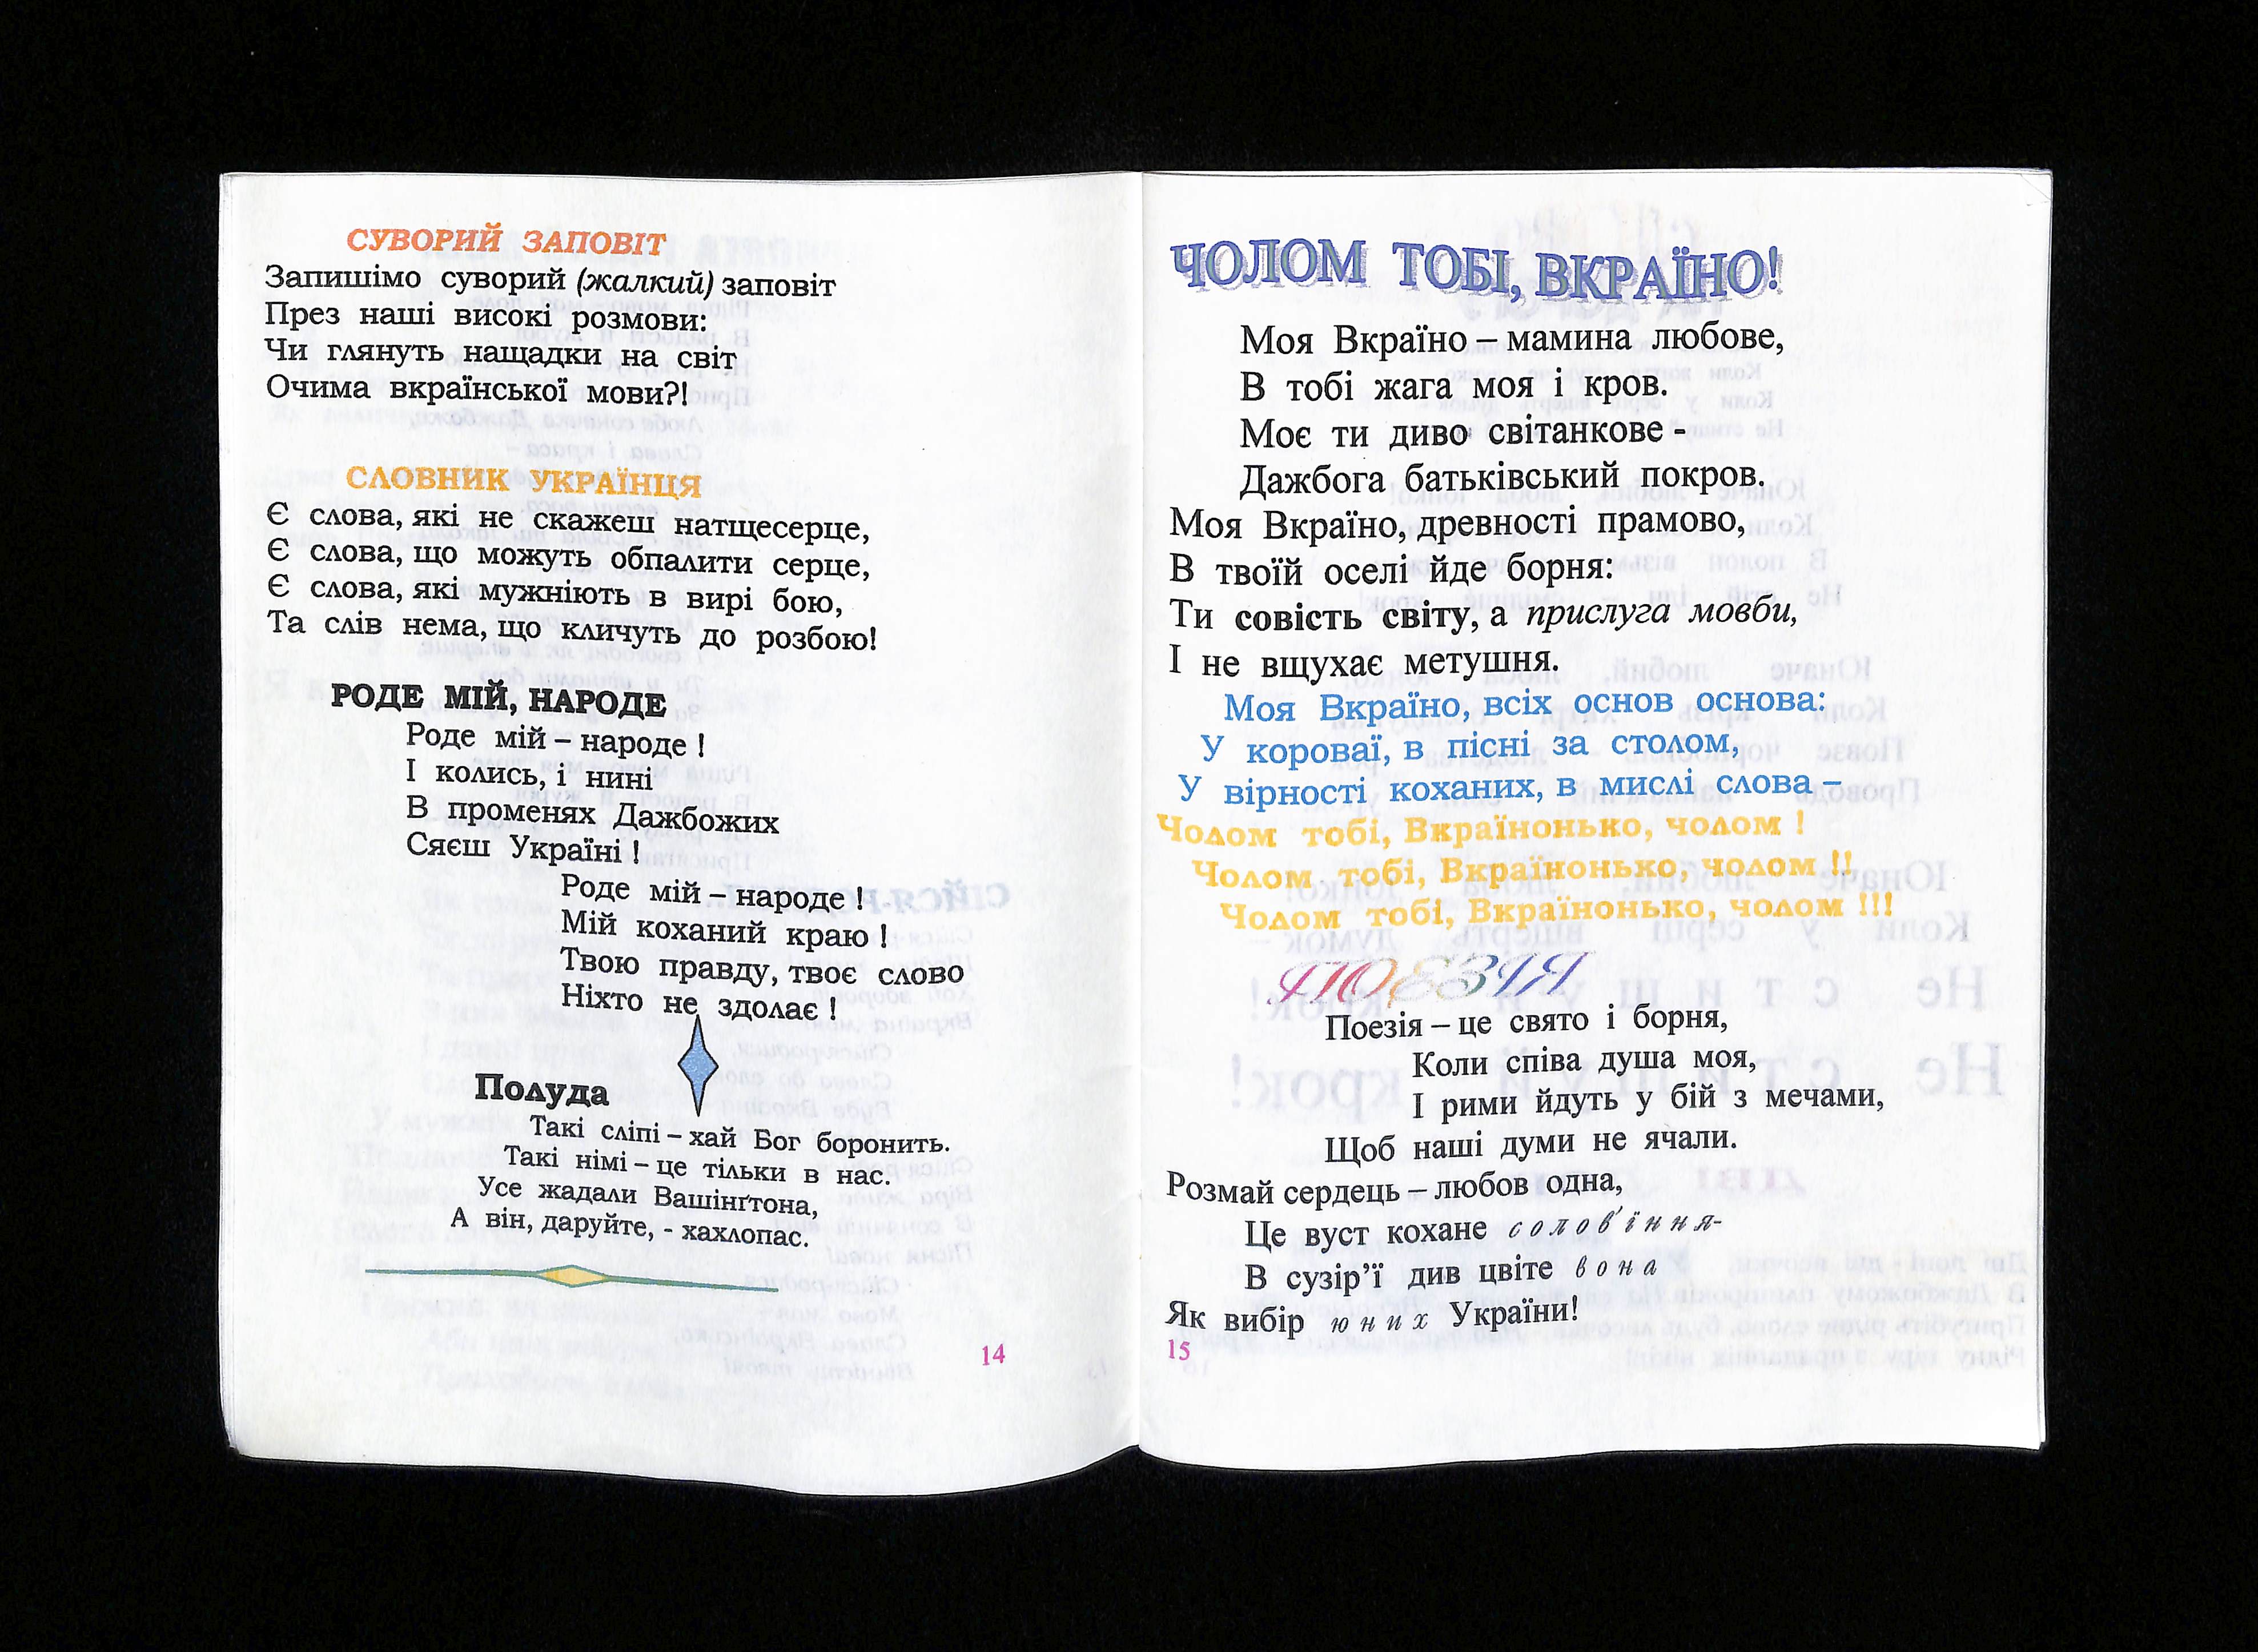 СУВОРИЙ ЗАПОВІТ
Запишімо суворий (жалкий) заповіт
През наші високі розмови:
Чи глянуть нащадки на світ
Очима вкраїнської мови?!
СЛОВНИК УКРАЇНЦЯ
Є слова, які не скажеш натщесерце,
Є слова, що можуть обпалити серце,
Є слова, які мужніють в вирі бою,
Та слів нема, що кличуть до розбою!
РОДЕ МІЙ, НАРОДЕ
Роде мій – народе !
І колись, і нині
В променях Дажбожих
Сяєш Україні !
Роде мій – народе !
Мій коханий краю !
Твою правду, твоє слово
Ніхто не здолає !
Полуда
Такі сліпі – хай Бог боронить.
Такі німі – це тільки в нас.
Усе жадали Вашінґтона,
А він, даруйте, - хахлопас.
14
ЧОЛОМ ТОБІ, ВКРАЇНО!
Моя Вкраїно – мамина любове,
В тобі жага моя і кров.
Моє ти диво світанкове -
Дажбога батьківський покров.
Моя Вкраїно, древності прамово,
В твоїй оселі йде борня:
Ти совість світу, а прислуга мовби,
І не вщухає метушня.
Моя Вкраїно, всіх основ основа:
У короваї, в пісні за столом,
У вірності коханих, в мислі слова –
Чолом тобі, Вкраїнонько, чолом !
Чолом тобі, Вкраїнонько, чолом !!
Чолом тобі, Вкраїнонько, чолом !!!
ПОЕЗІЯ
Поезія – це свято і борня,
Коли співа душа моя,
І рими йдуть у бій з мечами,
Щоб наші думи не ячали.
Розмай сердець – любов одна,
Це вуст кохане солов'їння-
В сузір'ї див цвіте вона
Як вибір юних України!
15